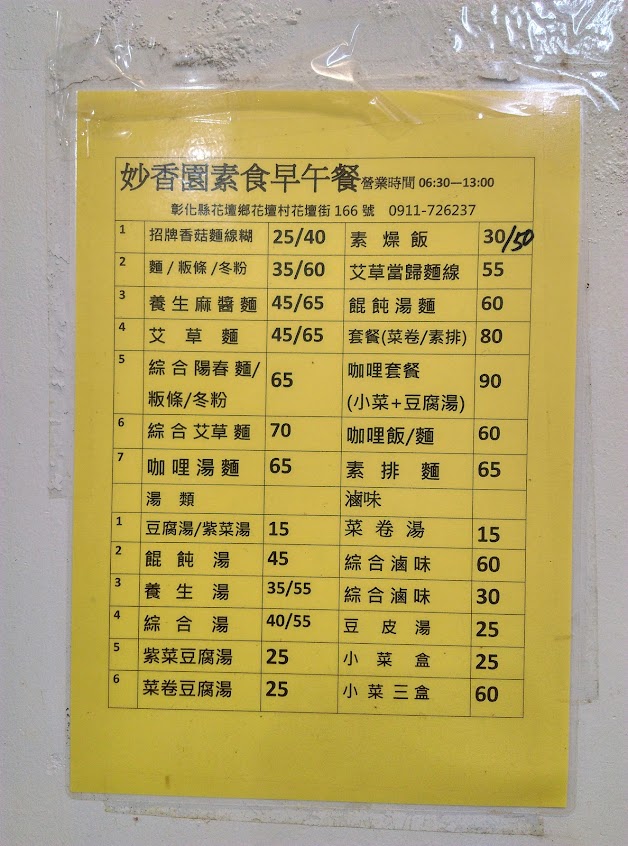 妙香園素食早午餐營業時間 06:30—13:00
彰化縣花壇鄉花壇村花壇街 166 號 0911-726237
1 招牌香菇麵線糊 25/40 素燥飯 30/50
2 麵/粄條/冬粉 35/60 艾草當歸麵線 55
3 養生麻醬麵 45/65 餛飩湯麵 60
4 艾草麵 45/65 套餐(菜卷/素排) 80
5 綜合陽春麵/ 65 咖哩套餐 90
粄條/冬粉 (小菜+豆腐湯)
6 綜合艾草麵 70 咖哩飯/麵 60
7 咖哩湯麵 65 素排麵 65
湯類 滷味
1 豆腐湯/紫菜湯 15 菜卷湯 15
2 餛飩湯 45 綜合滷味 60
3 養生湯 35/55 綜合滷味 30
4 綜合湯 40/55 豆皮湯 25
5 紫菜豆腐湯 25 小菜盒 25
6 菜卷豆腐湯 25 小菜三盒 60